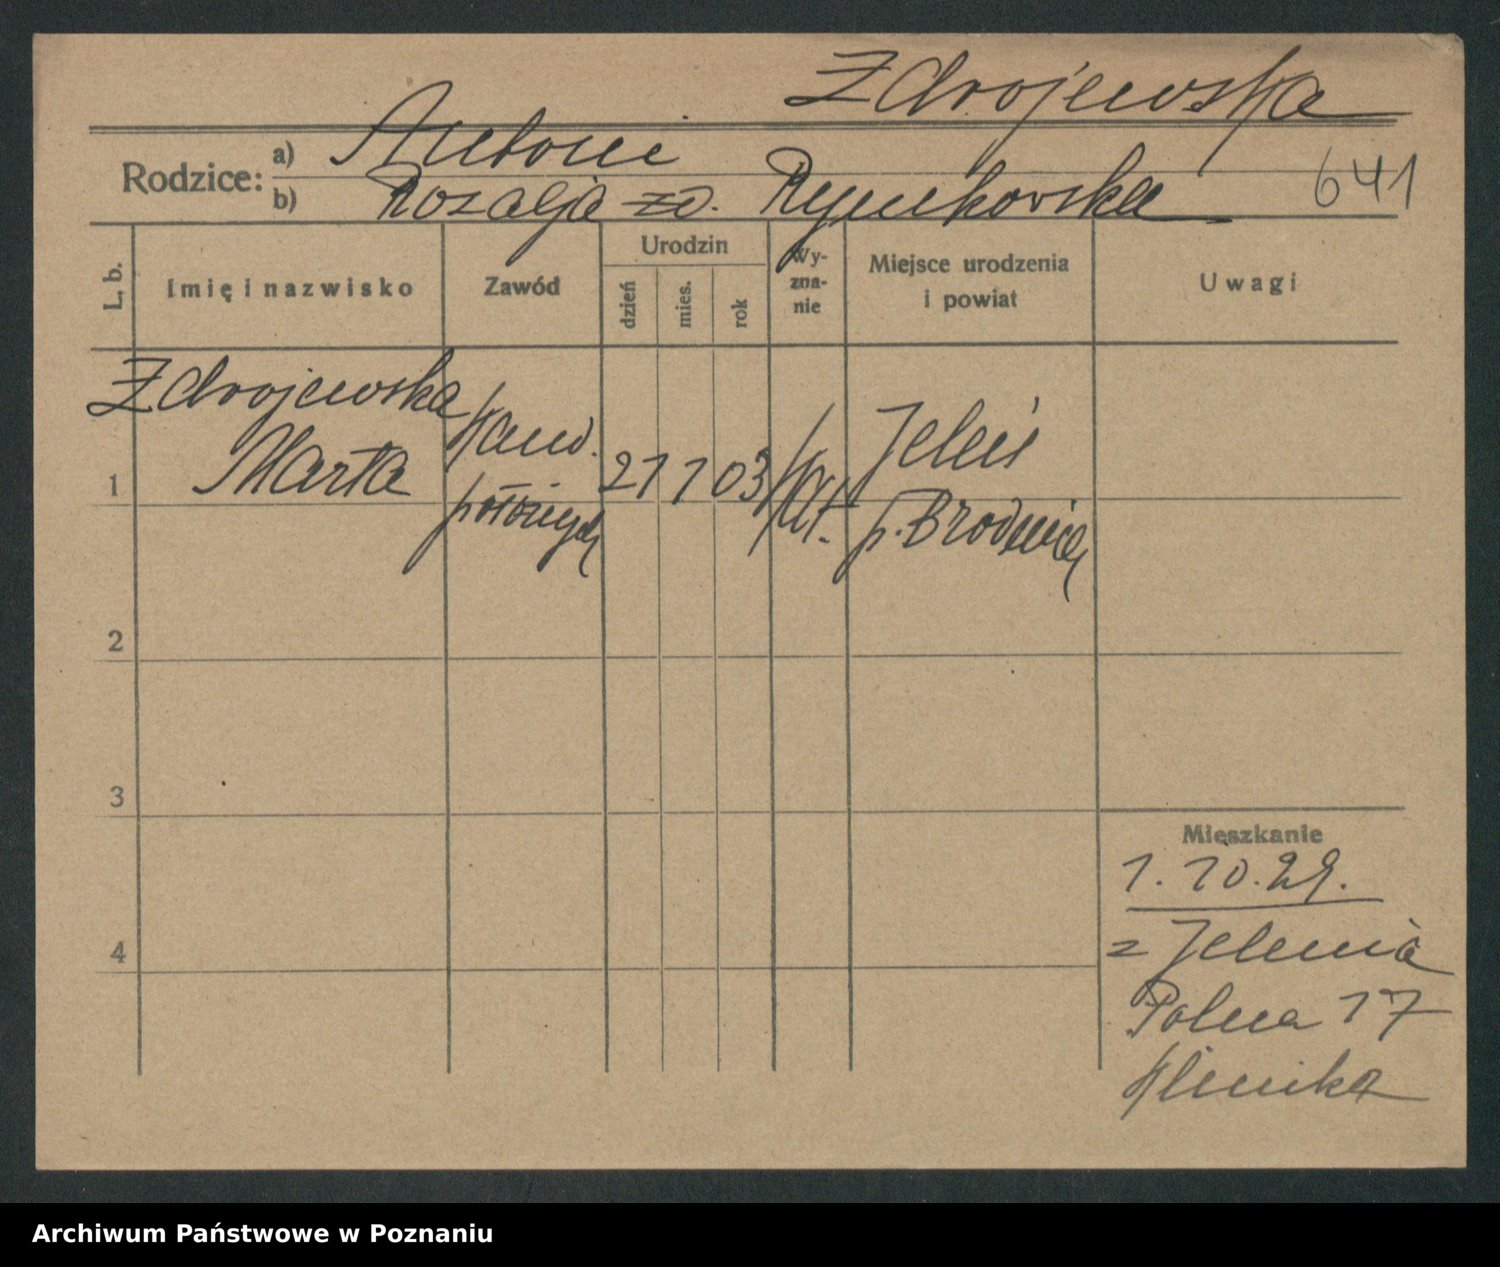 Zdrojewska
Rodzice:
a) Antoni
b) Rozalja zd. Rymkowska
641
L. b.
Imię i nazwisko
Zawód
Urodzin
dzień
mies.
rok
Wy-
zna-
nie
Miejsce urodzenia
i powiat
Uwagi
Zdrojewska
Marta
kand.
położnych
21 1 03
kat.
Jeleń
p. Brodnica
1
2
3
4
Mieszkanie
1. 10. 29.
z Jelenia
Polna 17
Klinika
Archiwum Państwowe w Poznaniu